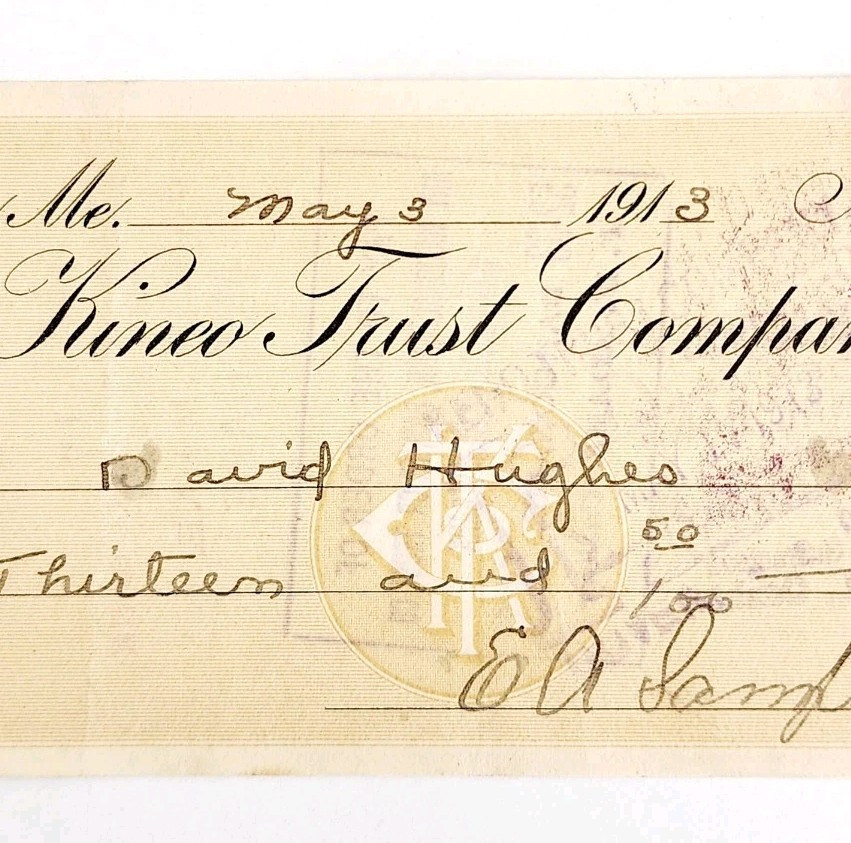 Me. May 3 1913
Kineo Trust Compan
David Hughes
Thirteen and 50/100
E A Samp